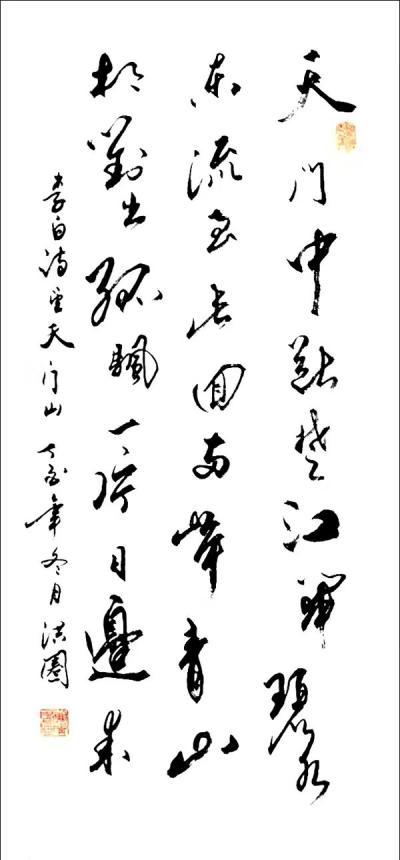 天门中断楚江開碧水
东流至此回两岸青山
相對出孤帆一片日邊来
李白诗望天门山 年冬月洪